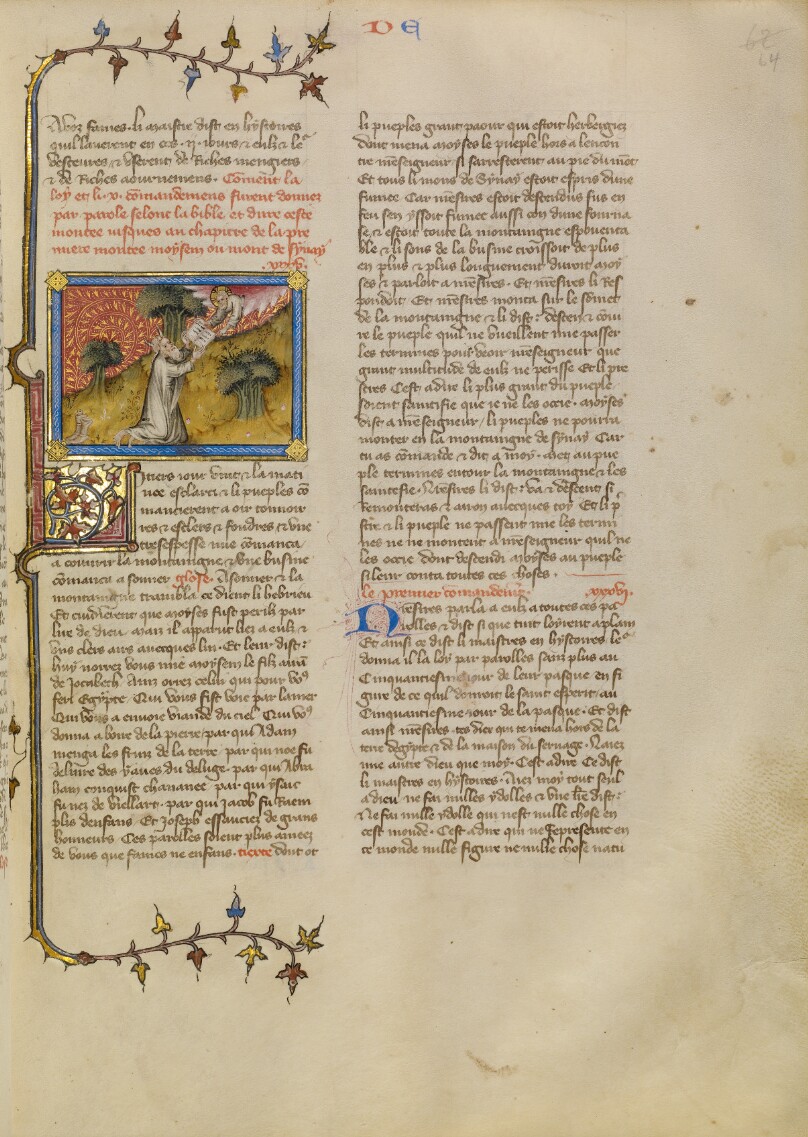 DE
62
64
vos fames. li maistre dist en hystoires
quil laverent en ces .ii. iours & eulz & le
vesteures & userent de riches mengiers
& de riches aournemens. Coment la
loy et li .v. comandemens furent donnez
par parole selonc la bible et dure ceste
montee iusques au chapitre de la pre
miere montee moysem ou mont de synay
.xxxv.
tiers iour vint & la mati
nee esclarci & li pueples co
mancierent a oir tonnoir
res & esclers & fondres & une
tresespesse nue comanca
a couvrir la montaingne & une busine
comanca a sonner glose. Asonner & la
montaingne trambla ce dient li hebrieu
Et cuidierent que moyses fust peris par
lire de dieu. Mais il apparut liez a eulz &
uns clers airs avecques lui. Et leur dist:
huy norrez vous mie moysem le filz
de Jocabech. Ainz orrez celui qui pour vos
feri Egypte. Qui vous fist voie par la mer
Qui vous a envoie viande du ciel. Qui vos
donna a boire de la pierre. par qui Adam
menga les fruiz de la terre. par qui noe fu
delivre des yaues du deluge. par qui Abra
ham conquist chananee. par qui ysaac
fu nez de viellart. par qui Jacob fu
plis denfans. Et Joseph essauciez de grans
honneurs. Ces parolles soient plus amees
de vous que fames ne enfans. texte dont ot
li pueples grant paour qui estoit herbergiez
dont mena moyses le pueple hors a lencon
tre meseigneur. si sarresterent au pie du mont
Et touz li mons de Synay estoit espris dune
fumee. Car mestres estoit descendus sus en
feu sen yssoit fumee aussi con dune fourna
se, & estoit toute la montaingne espoventa
ble & li sons de la busine croissoit de plus
en plus & plus longuement duroit. moy
ses & parloit a mestres. Et mestres li res
pondoit. Et mestres monta sur le somet
de la montaingne & li dist: descen & coiu
re le pueple quil ne vueillent mie passer
les termines pour veoir meseigneur que
grant multitude de eulz ne perisse Et li pre
stres Cest adire li plus grant du pueple
soient saintifie que ie ne les occie. moyses
dist a meseigneur, li pueples ne pourra
monter en la montaingne de synay Car
tu as comande & dit a moy. mez au pue
ple termines entour la montaingne & les
saintefie. Mestres li dist: va & descent si
remonteras & aaron avecques toy. Et li p
stre & li pueple ne passent mie les termi
nes ne ne montent a meseigneur quil ne
les occie. dont descendi moyses au pueple
si leur conta toutes ces choses.
le premier comandement. xxxvi.
Mestres parla a eulz a toutes ces pa
rolles & dist si que tuit loyrent aplain
Et ainsi ce dist li maistres en hystoires le
donna il la loy par parolles sanz plus au
Cinquantiesme iour de leur pasque. en fi
gure de ce quil donroit le saint esperit au
Cinquantiesme iour de la pasque. Et dist
ainsi mestres. ton dieu qui te mena hors de la
terre degypte & de la maison du servage. Naiez
mie autre dieu que moy. Cest adire ce dist
li maistres en hystoires. Aiez moy tout seul
a dieu. ne fai nulles ydolles & une lre dist:
Ne fai nulle ydolle qui nest nulle chose en
cest monde. Cest adire qui ne represente en
ce monde nulle figure ne nulle chose natu